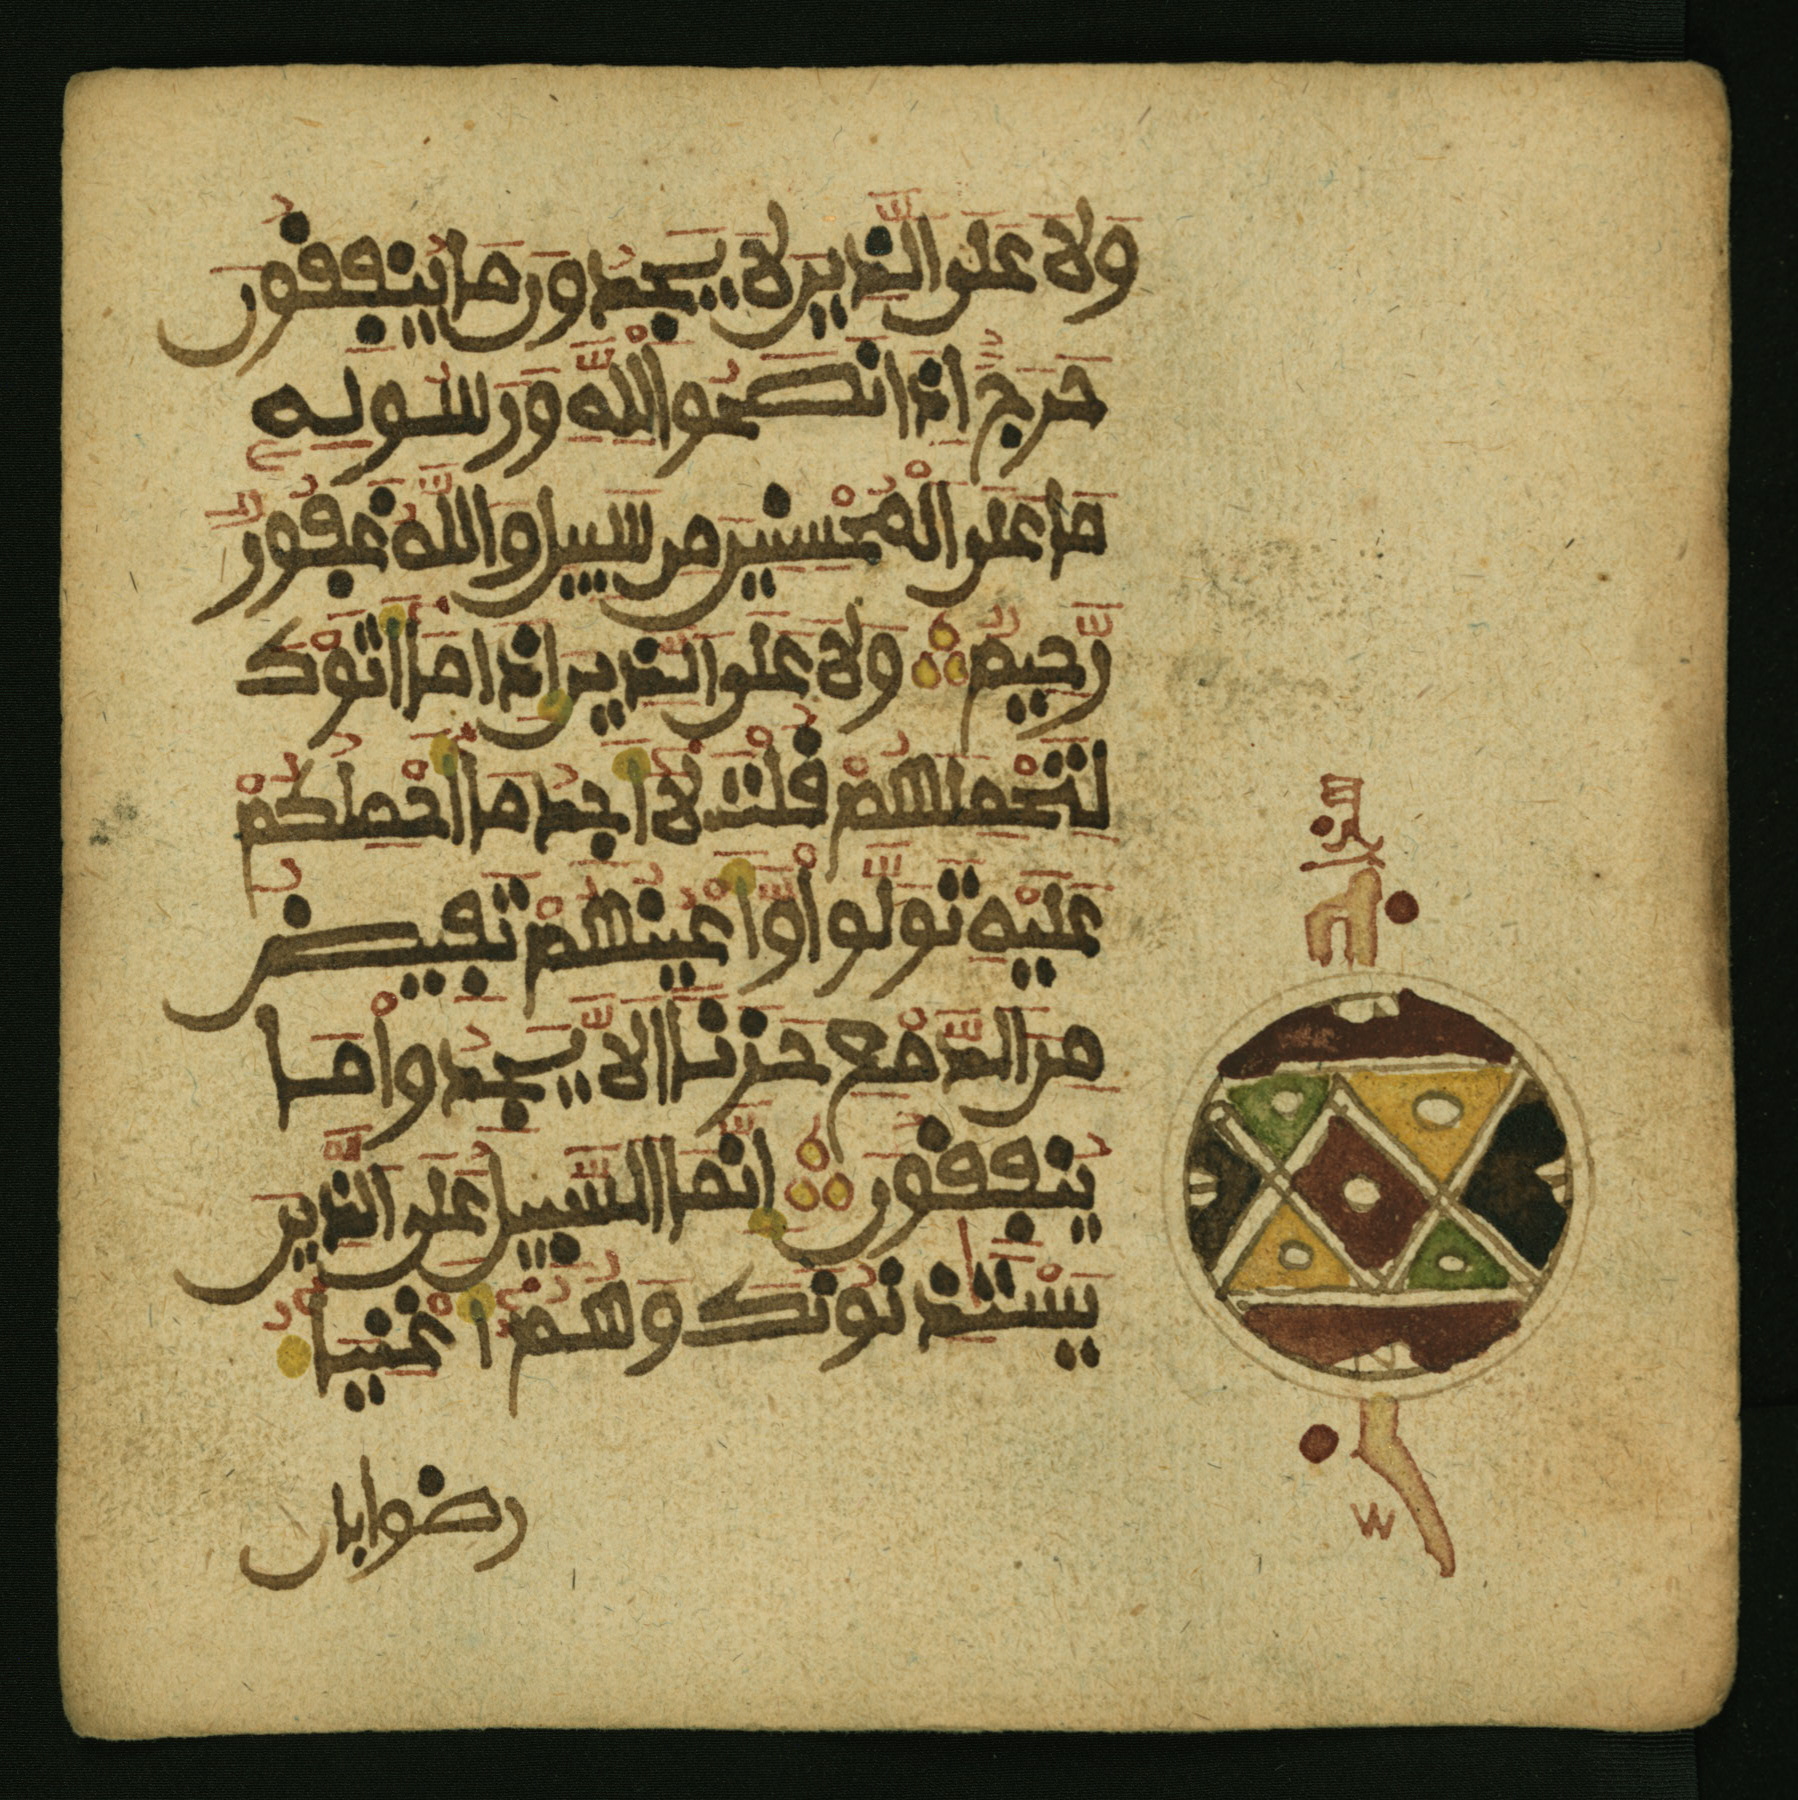 وَلَا عَلَى الَّذِينَ لَا يَجِدُونَ مَا يُنفِقُونَ
حَرَجٌ اِذَا نَصَحُوا لِلَّهِ وَرَسُولِهِ
مَا عَلَى الْمُحْسِنِينَ مِن سَبِيلٍ وَاللَّهُ غَفُورٌ
رَّحِيمٌ وَلَا عَلَى الَّذِينَ إِذَا مَا أَتَوْكَ
لِتَحْمِلَهُمْ قُلْتَ لَا أَجِدُ مَا أَحْمِلُكُمْ
عَلَيْهِ تَوَلَّوا وَّأَعْيُنُهُمْ تَفِيضُ
مِنَ الدَّمْعِ حَزَنًا اَلَّا يَجِدُوا مَا
يُنفِقُونَ إِنَّمَا السَّبِيلُ عَلَى الَّذِينَ
يَسْتَٰذِنُونَكَ وَهُمُ أَغْنِيَاءُ
رضوا بان